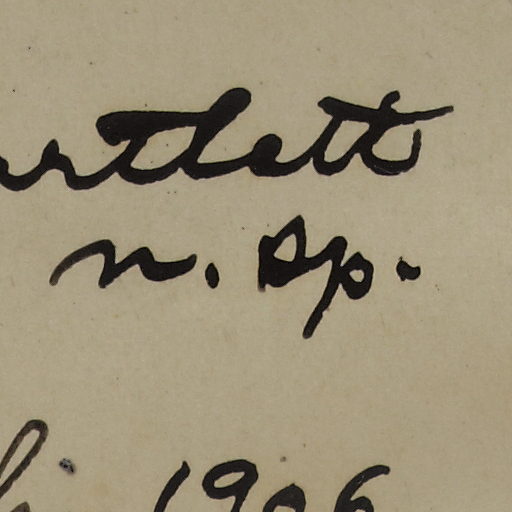 artlett
n. sp.
1906